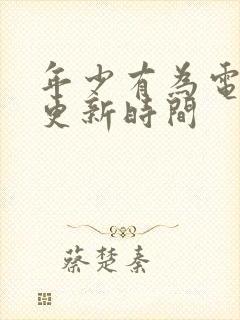 年少有為電
更新時間
蔡楚秦